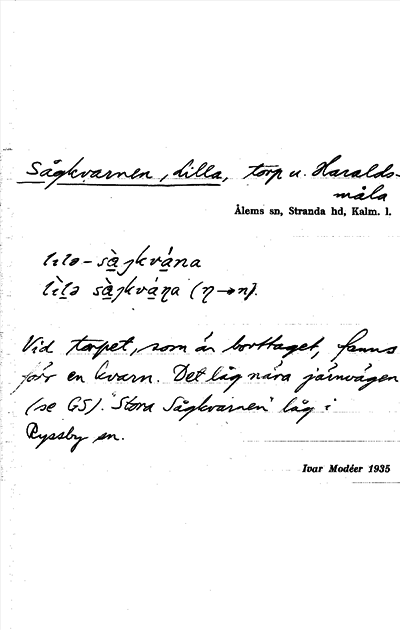 Sågkvarnen, Lilla, torp u. Haralds-
måla
Ålems sn, Stranda hd, Kalm. l.
Vid torpet, som är borttaget, fanns
förr en kvarn. Det låg nära järnvägen
(se GS). "Stora Sågkvarnen" låg i
Ryssby sn.
Ivar Modéer 1935